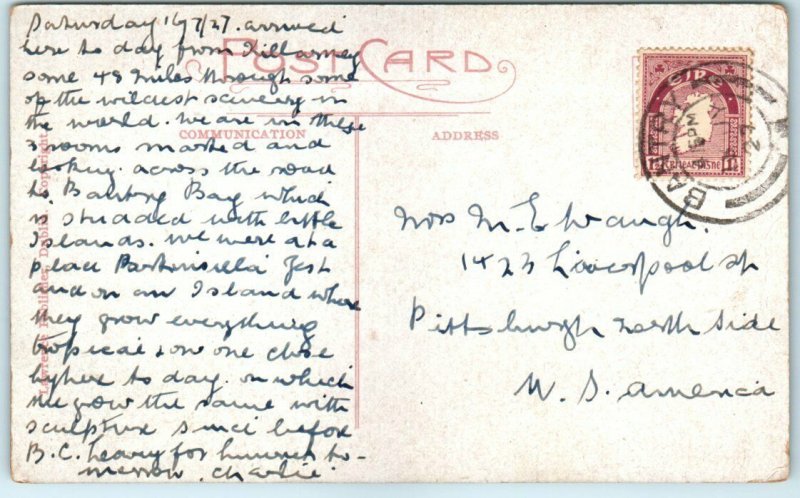 Saturday 16/7/27. arrived
here to day from Killarney
some 48 miles through some
of the wildest scenery in
the world. we are in these
3 rooms marked and
looking across the road
to Bantry Bay which
is studded with little
Islands. we were at a
place yest
and on an Island where
they grow everything
tropical & on one close
by here to day. on which
the grow the same with
sculpture since before
B.C. leaving for to-
morrow. Charlie.
POST CARD
COMMUNICATION
ADDRESS
Lawrence Publisher, Dublin Copyright
BANTRY
PM
27
Mrs M. E. Waugh.
1423 Liverpool st
Pittsburgh north side
U. S. america